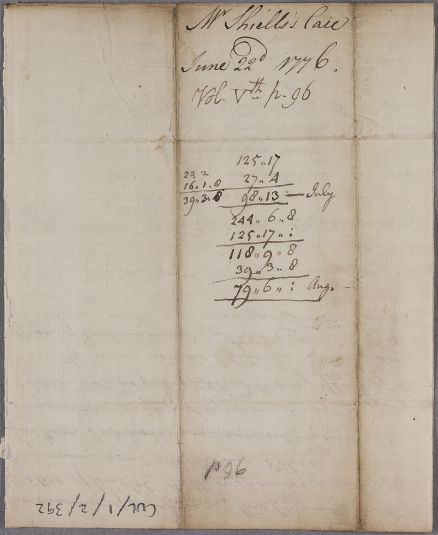 Mr Shiells's Case
June 22d 1776.
Vol. Vth p. 96
125,, 17
27,, 4
98,, 13 — July
23 2
16. 1. 8
39,, 3. 8
244,, 6,, 8
125,, 17,, :
118,, 9,, 8
39,, 3,, 8
79,, 6,, : Aug.
p 96
CUL/1/2/392